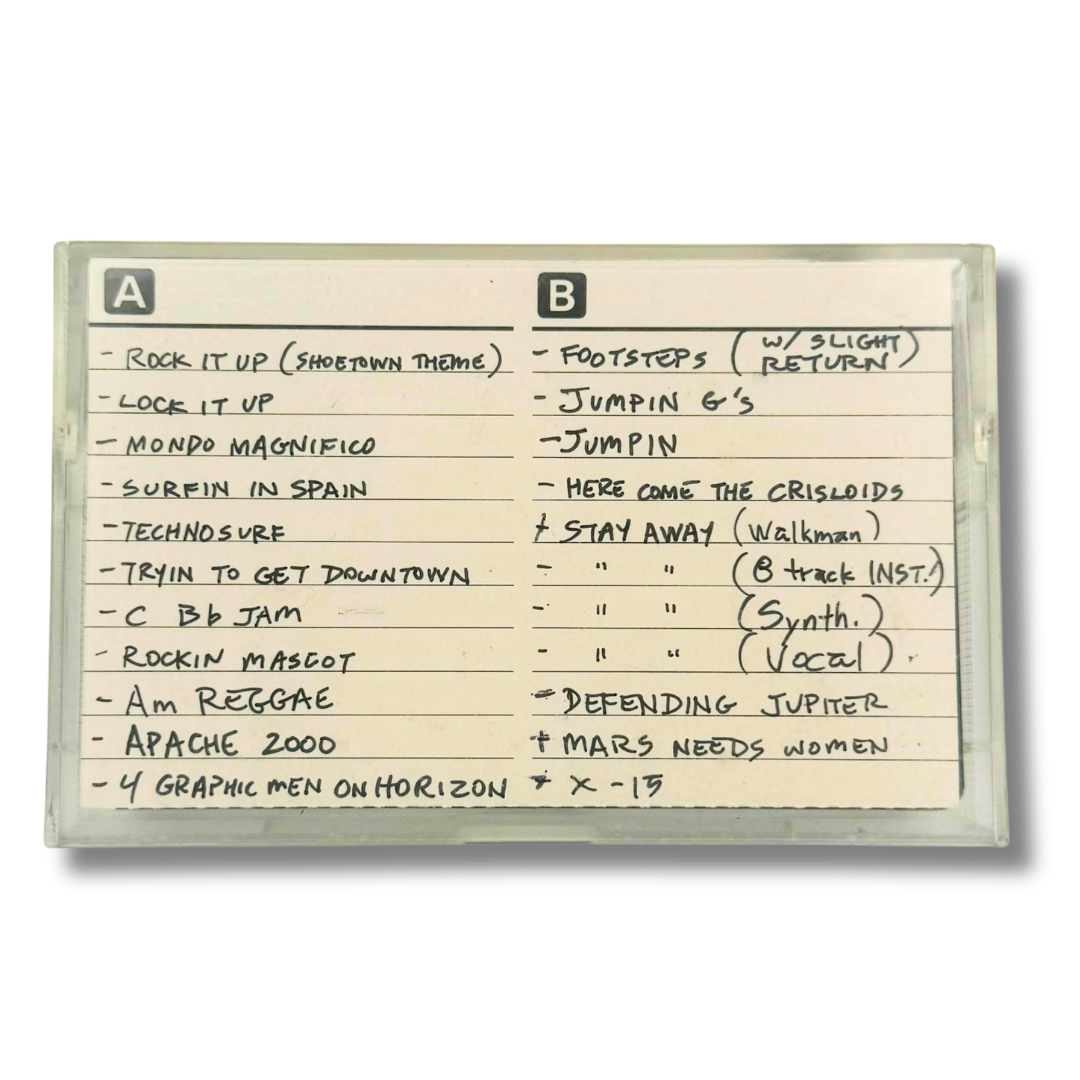 A
- ROCK IT UP (SHOETOWN THEME)
- LOCK IT UP
- MONDO MAGNIFICO
- SURFIN IN SPAIN
- TECHNOSURF
- TRYIN TO GET DOWNTOWN
- C Bb JAM
- ROCKIN MASCOT
- Am REGGAE
- APACHE 2000
- 4 GRAPHIC MEN ON HORIZON
B
- FOOTSTEPS (W/ SLIGHT
RETURN)
- JUMPIN G's
- JUMPIN
- HERE COME THE CRISLOIDS
+ STAY AWAY (Walkman)
- " " (8 track INST.)
- " " (Synth.)
- " " (Vocal).
- DEFENDING JUPITER
+ MARS NEEDS WOMEN
+ X-15